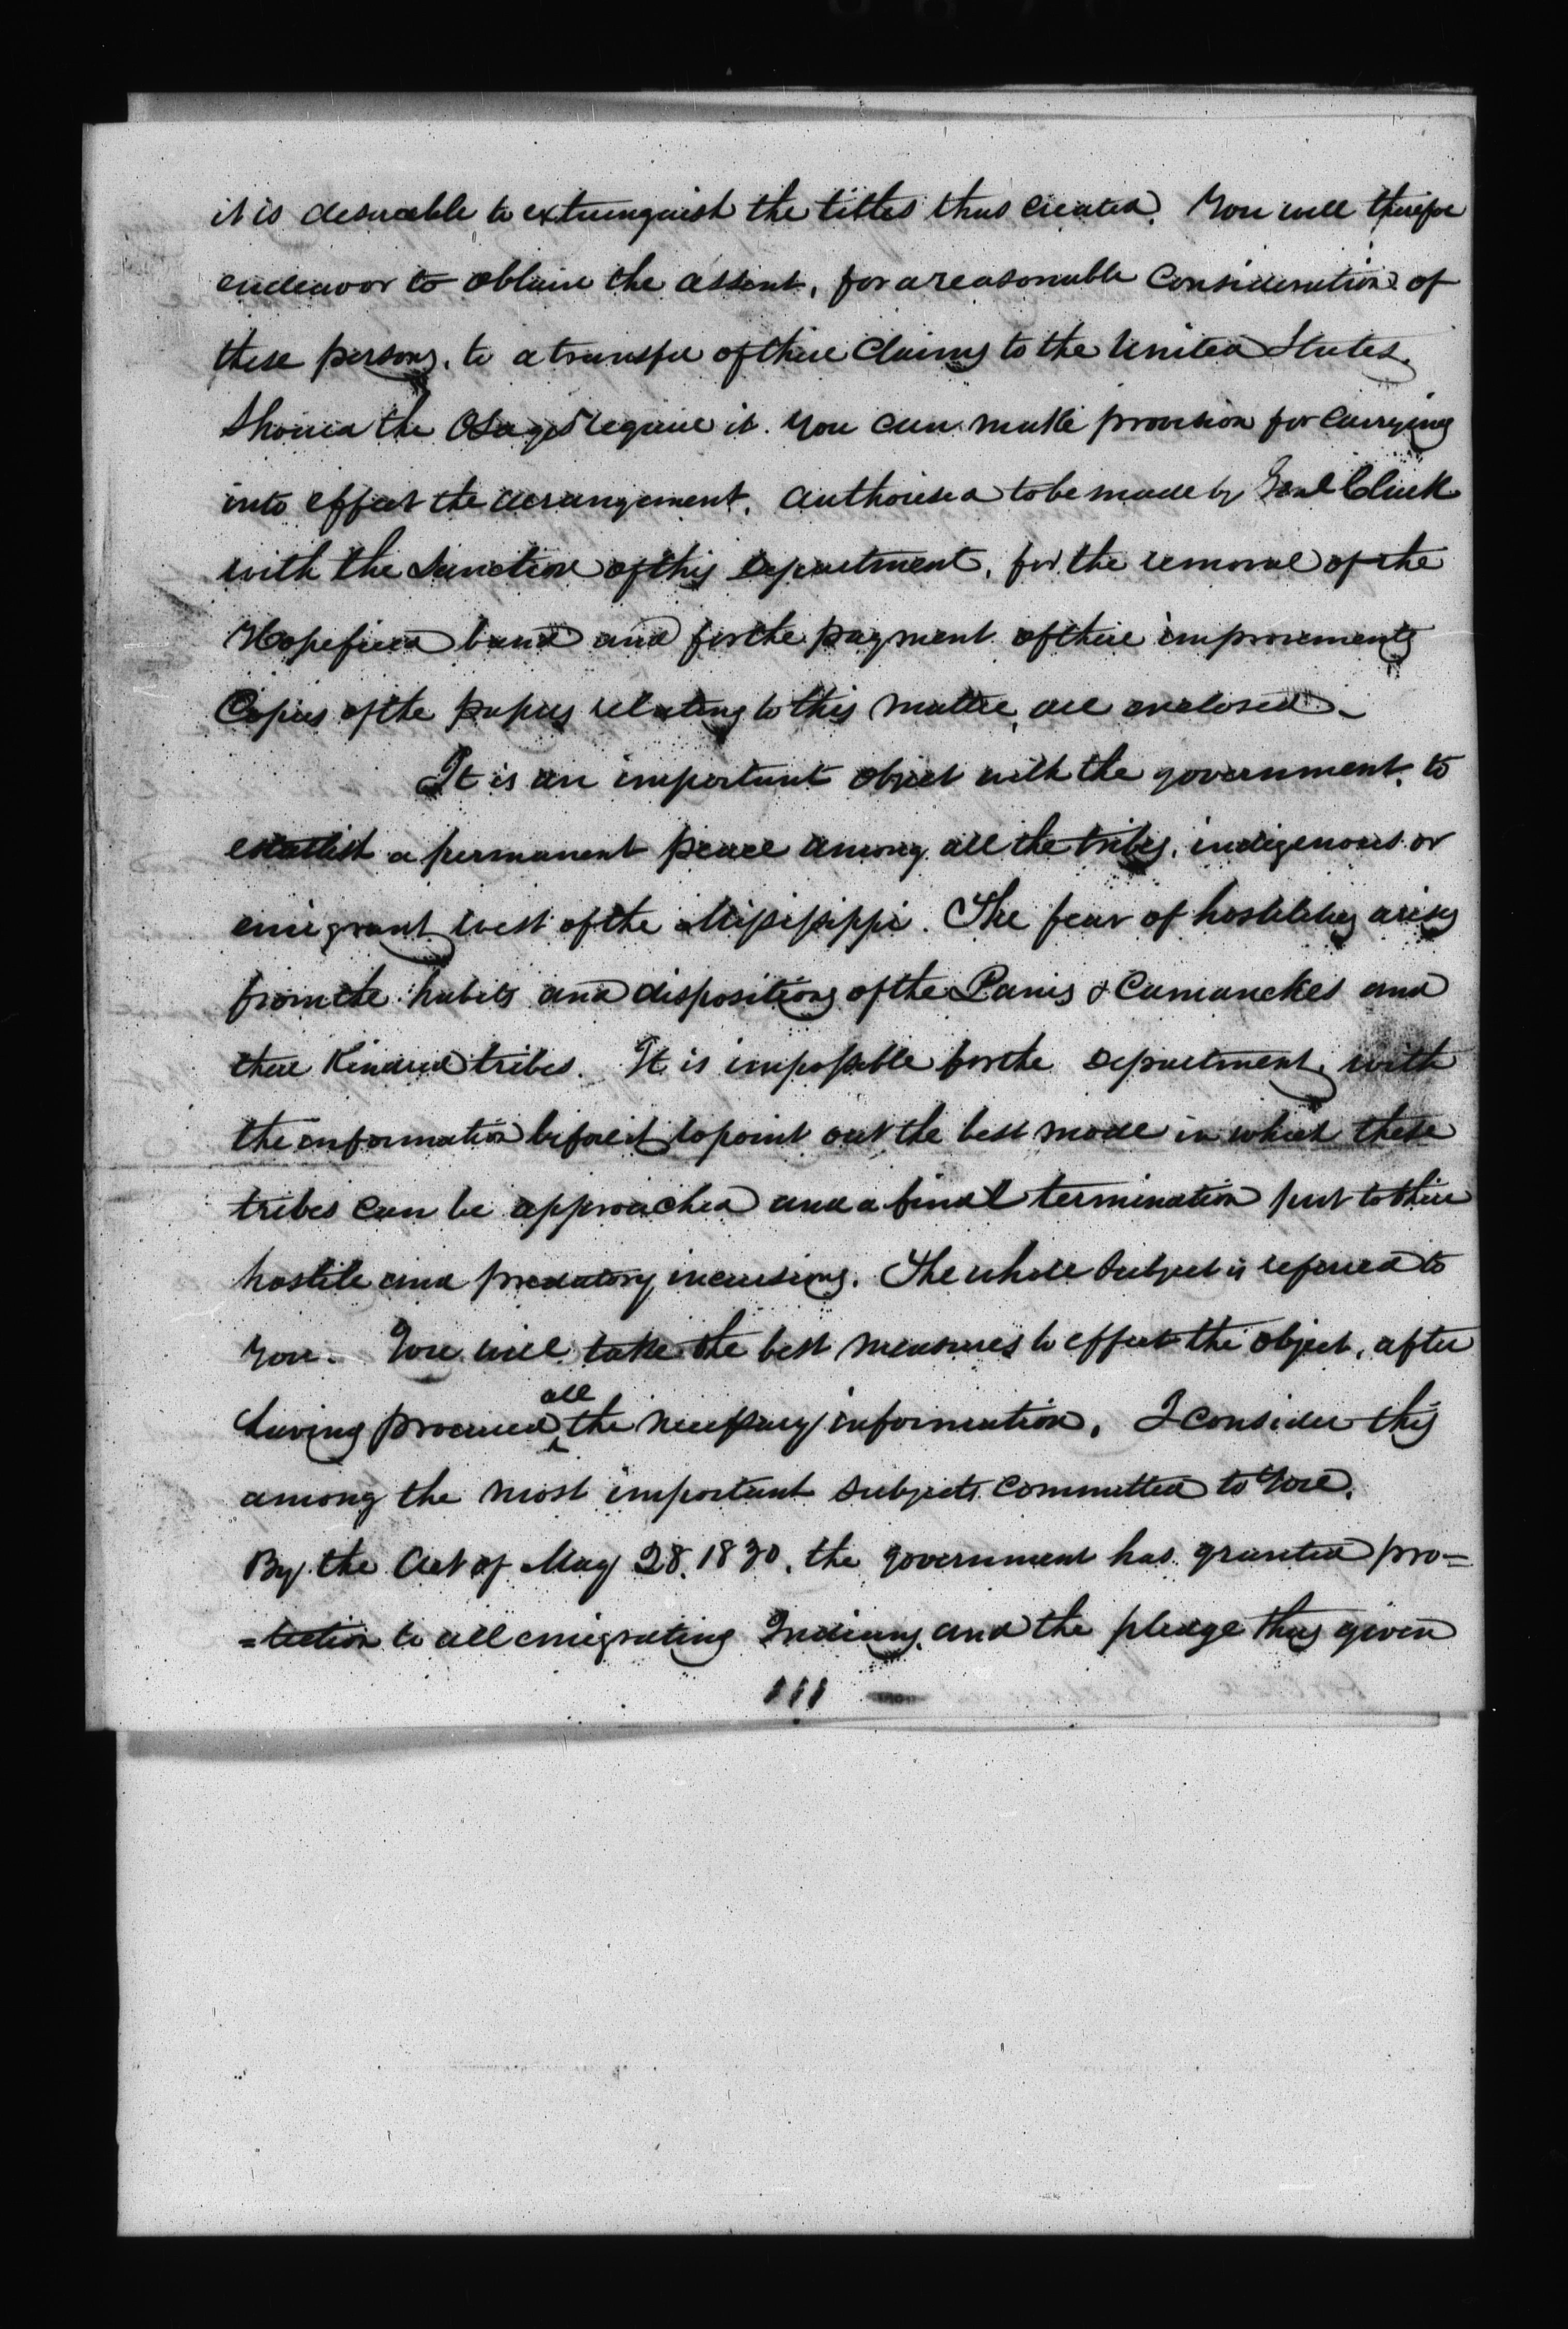 it is desirable to extuinguish the titles thus created. You will therefore
endeavor to obtain the assent, for a reasonable Consideration of
these persons, to a transfer of their Claims to the United States.
Should the Osages require it. You can make provision for carrying
into effect the arrangement, authorised to be made by Genl Clark
with the Sanction of this Department, for the removal of the
Hopefield band and for the payment of their improvements
Copies of the papers relating to this matter, are enclosed -
It is an important object with the government, to
establish a permanent peace among all the tribes, indigenous or
emigrant west of the Missisippi. The fear of hostilities arises
from the habits and dispositions of the Panis & Camanches and
their Kindred tribes. It is impossible for the Department, with
the information before it, to point out the best mode in which these
tribes can be approached and a final termination put to their
hostile and predatory incursions. The whole Subject is referred to
You. You will take the best measures to effect the object, after
having procured all the necessary information. I consider this
among the most important subjects committed to You.
By the Act of May 28. 1830, the government has granted pro=
=tection to all emigrating Indians, and the pledge thus given
111